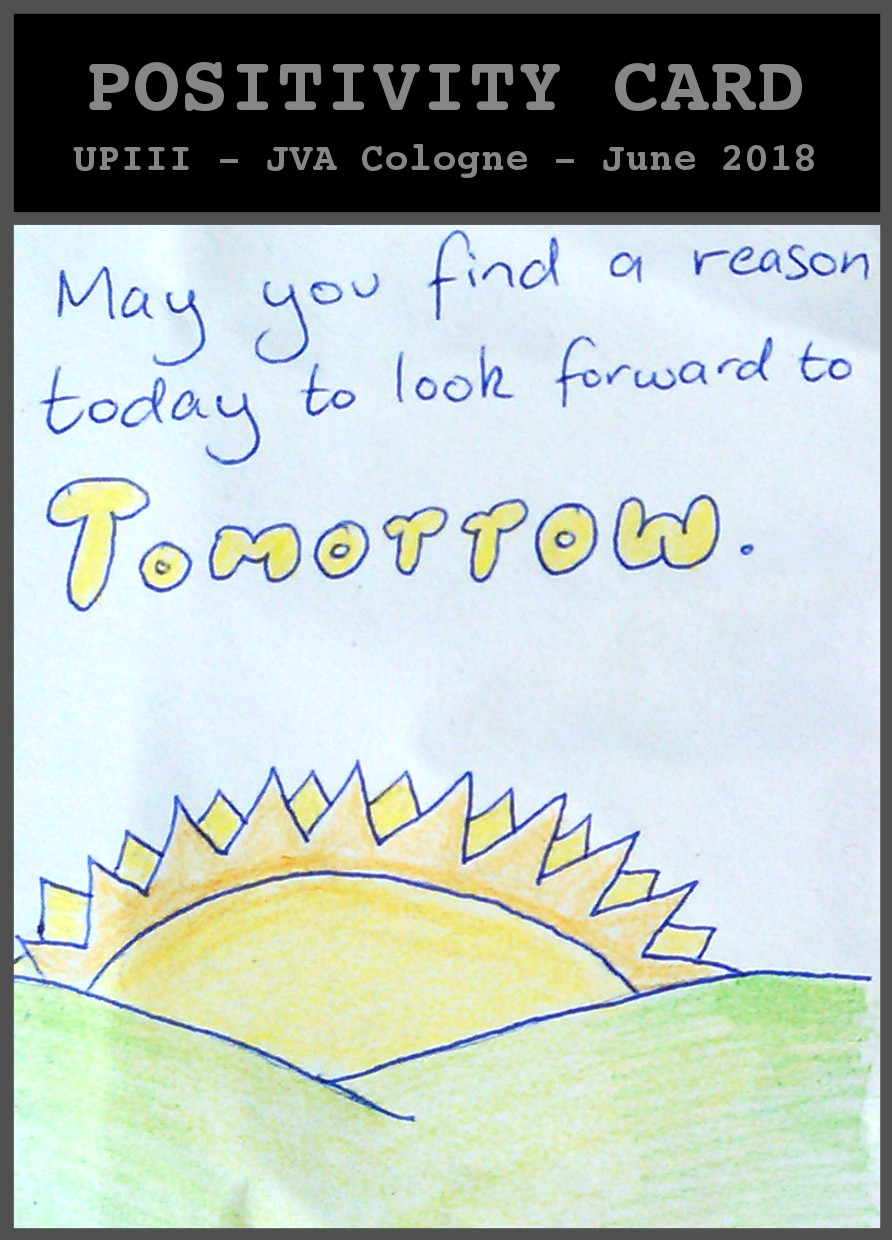 POSITIVITY CARD
UPIII - JVA Cologne - June 2018
May you find a reason
today to look forward to
Tomorrow.